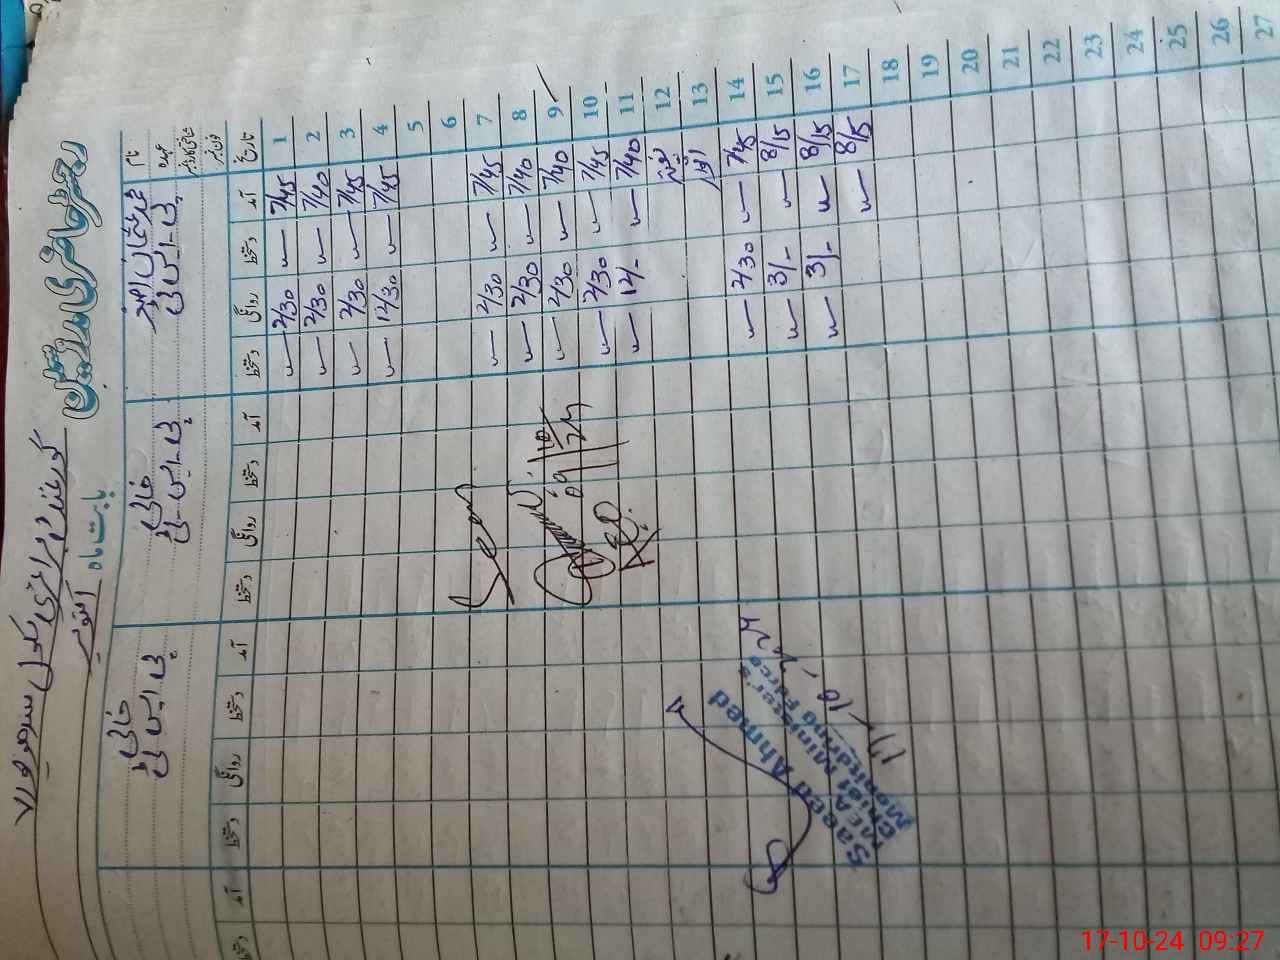 رجسٹر حاضری مدرسین
گورنمنٹ پرائمری سکول
بابت ماہ اکتوبر
نام
عہدہ
پی۔ایس۔ٹی
خالی
پی۔ایس۔ٹی
خالی
پی۔ایس۔ٹی
تاریخ آمد دستخط روانگی دستخط آمد دستخط روانگی دستخط آمد دستخط روانگی دستخط آمد دستخط
1 7/45 2/30
2 7/40 2/30
3 7/45 2/30
4 7/45 12/30
5
6
7 7/45 2/30
8 7/40 2/30
9 7/40 2/30
10 7/45 2/30
11 7/40 12/-
12
13 اتوار
14 7/45 2/30
15 8/15 3/-
16 8/15 3/-
17 8/15
18
19
20
21
22
23
24
25
26
27
09/10/24
Saeed Ahmed
MEA
Chief Minister's
Monitoring Force
17-10-24 09:27